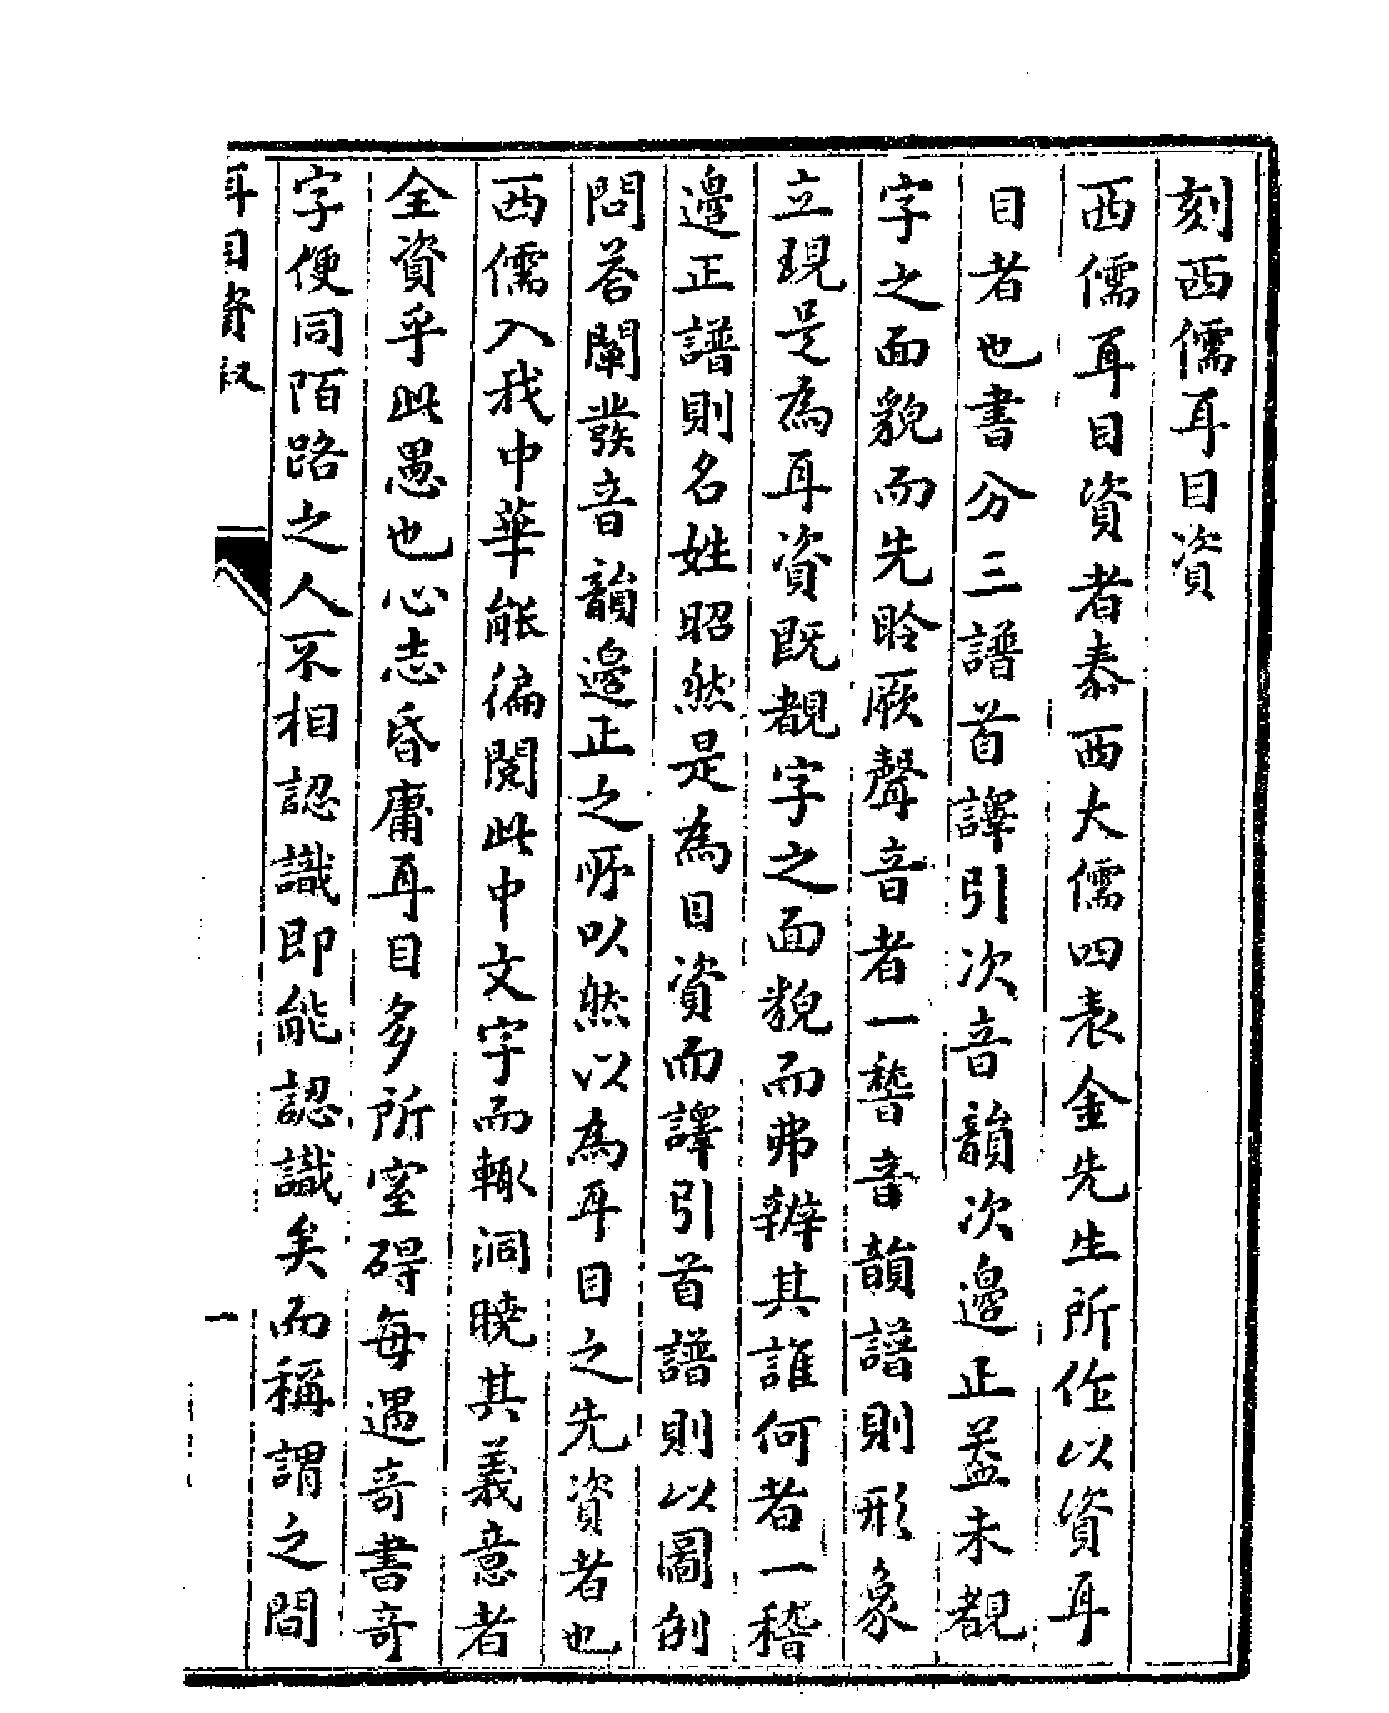 刻西儒耳目資
西儒耳目資者泰西大儒四表金先生所作以資耳
目者也書分三譜首譯引次音韻次邊正葢未覩
字之面貌而先聆厥聲音者一稽音韻譜則形象
立現是為耳資既覩字之面貌而弗辨其誰何者一稽
邊正譜則名姓昭然是為目資而譯引首譜則以圖例
問荅闡發音韻邊正之所以然以為耳目之先資者也
西儒入我中華能徧閱此中文字而輙洞曉其義意者
全資乎此愚也心志昏庸耳目多所窒碍每遇竒書竒
字便同陌路之人不相認識即能認識矣而稱謂之間
耳目資叙
一